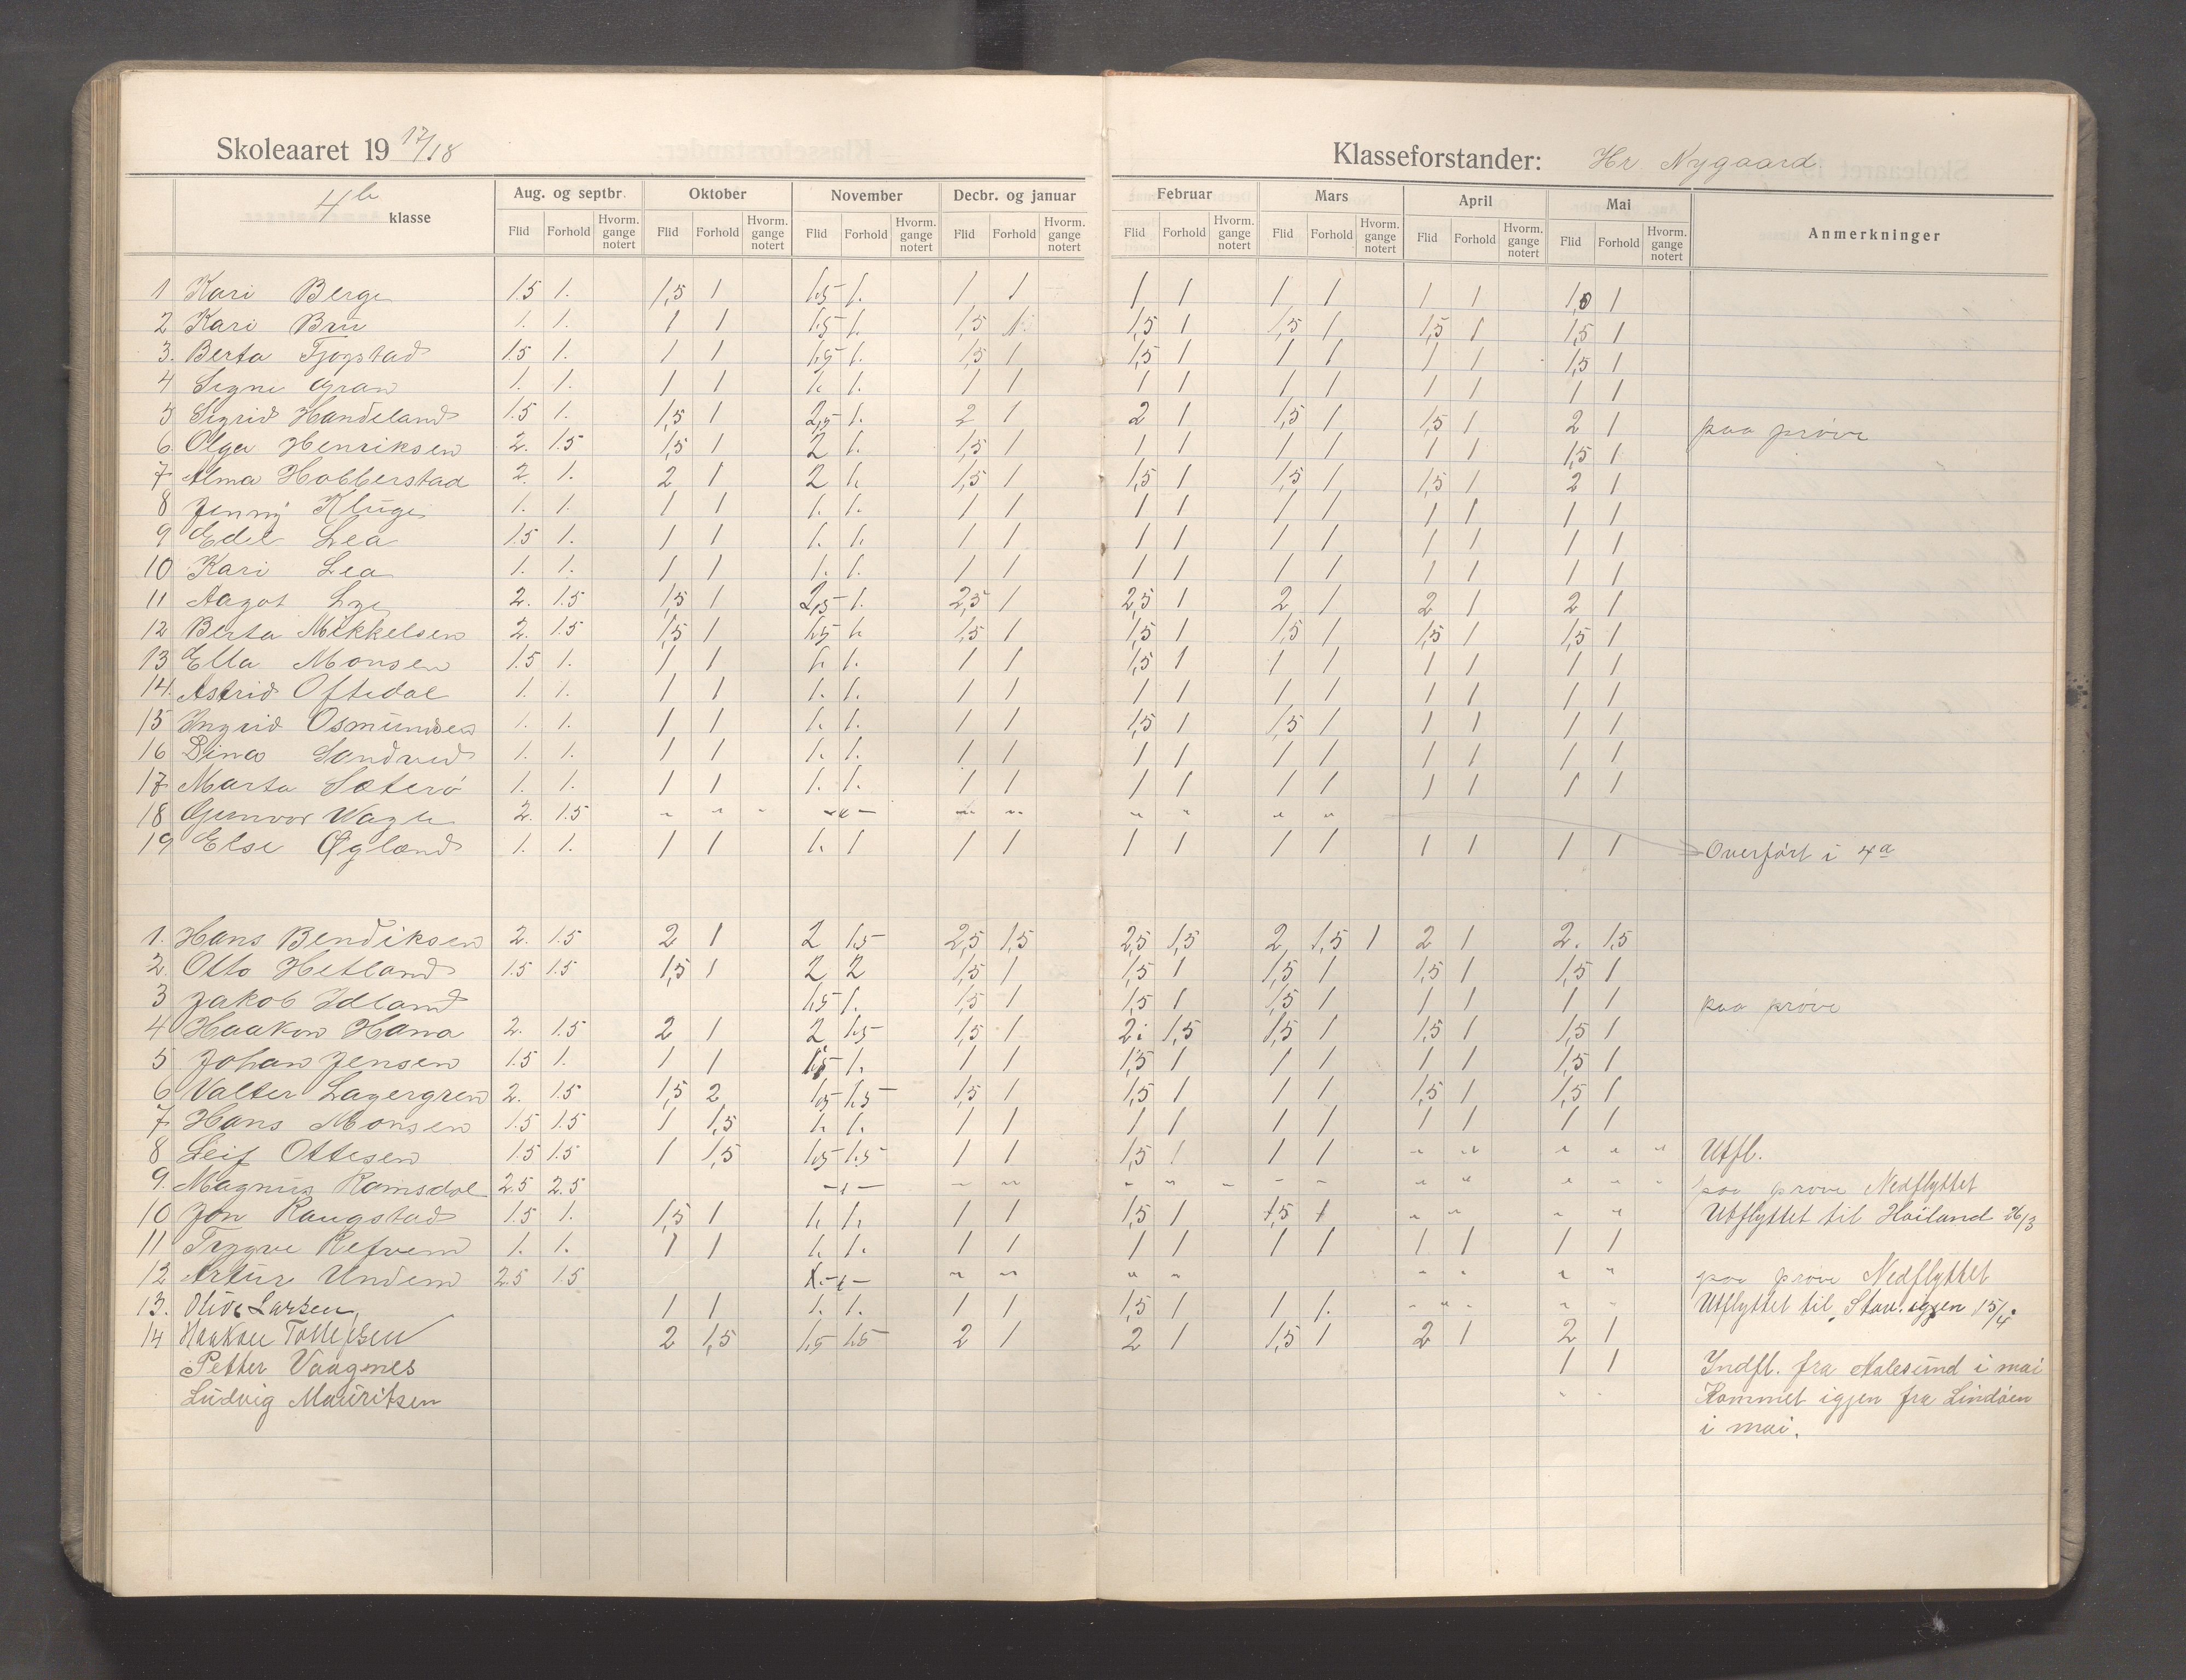 Skoleaaret 19 17/18
Klasseforstander: Hr Nygaard
4b klasse
Aug. og septbr. Oktober November Decbr. og januar Februar Mars April Mai Anmerkninger
Flid Forhold Hvorm. gange notert Flid Forhold Hvorm. gange notert Flid Forhold Hvorm. gange notert Flid Forhold Hvorm. gange notert Flid Forhold Hvorm. gange notert Flid Forhold Hvorm. gange notert Flid Forhold Hvorm. gange notert Flid Forhold Hvorm. gange notert
1 Kari Berge 1.5 1. 1,5 1 1.5 1. 1 1 1 1 1 1 1 1 1,0 1
2 Kari Bru 1. 1. 1 1 1.5 1. 1,5 1. 1,5 1 1,5 1 1,5 1 1,5 1
3. Berta Tjogstad 1.5 1. 1 1 1.5 1. 1,5 1 1,5 1 1 1 1 1 1,5 1
4 Signe Gran 1. 1. 1 1 1. 1. 1 1 1 1 1 1 1 1 1 1
5 Sigrid Handeland 1.5 1. 1,5 1 2,5 1. 2 1 2 1 1,5 1 1,5 1 2 1 paa prøve
6. Olga Henriksen 2. 1.5 1,5 1 2 1. 1,5 1 1 1 1 1 1 1 1,5 1
7 Alma Hobberstad 2. 1. 2 1 2 1. 1,5 1 1,5 1 1,5 1 1,5 1 2 1
8 Jenny Kluge 1. 1. 1 1 1. 1. 1 1 1 1 1 1 1 1 1 1
9 Edel Lea 1.5 1. 1 1 1. 1. 1 1 1 1 1 1 1 1 1 1
10 Kari Lea 1. 1. 1 1 1. 1. 1 1 1 1 1 1 1 1 1 1
11 Aagot Lye 2. 1.5 1,5 1 2,5 1. 2,5 1 2,5 1 2 1 2 1 2 1
12 Berta Mikkelsen 2. 1.5 1,5 1 1.5 1. 1,5 1 1,5 1 1,5 1 1,5 1 1,5 1
13 Ella Monsen 1.5 1. 1 1 1. 1. 1 1 1,5 1 1 1 1 1 1 1
14. Astrid Oftedal 1. 1. 1 1 1. 1. 1 1 1 1 1 1 1 1 1 1
15 Ingrid Osmundsen 1. 1. 1 1 1. 1. 1 1 1,5 1 1,5 1 1 1 1 1
16 Dina Sandved 1. 1. 1 1 1. 1. 1 1 1 1 1 1 1 1 1 1
17 Marta Sæterø 1. 1. 1 1 1. 1. 1 1 1 1 1 1 1 1 1 1
18 Gunvor Wagle 2. 1.5 " " " -"- " " " " " "
19 Else Øgland 1. 1. 1 1 1. 1 1 1 1 1 1 1 1 1 1 1 Overført i 4a
1. Hans Bendiksen 2. 1.5 2 1 2 1.5 2,5 1,5 2,5 1,5 2 1,5 1 2 1 2. 1.5
2. Otto Hetland 1.5 1.5 1,5 1 2 2 1,5 1 1,5 1 1,5 1 1,5 1 1,5 1
3 Jakob Idland 1.5 1. 1,5 1 1,5 1 1,5 1 1 1 1 1 paa prøve
4 Haakon Hana 2. 1.5 2 1 2 1.5 1,5 1 2. 1,5 1,5 1 1,5 1 1,5 1
5 Johan Jensen 1.5 1. 1 1 1.5 1. 1 1 1,5 1 1 1 1 1 1,5 1
6 Valter Lagergren 2. 1.5 1,5 2 1.5 1.5 1,5 1 1,5 1 1 1 1,5 1 1,5 1
7 Hans Monsen 1.5 1.5 1 1,5 1. 1. 1 1 1 1 1 1 1 1 1 1
8 Leif Ottesen 1.5 1.5 1 1,5 1.5 1.5 1 1 1,5 1 1 1 " " " " " Utfl.
9. Magnus Ramsdal 2.5 2.5 -"- " " " " " " " " " " " " paa prøve Nedflyttet
10 Jon Raugstad 1.5 1. 1,5 1 1. 1. 1 1 1,5 1 1,5 1 " " " " Utflyttet til Høiland 26/3
11 Trygve Refvem 1. 1. 1 1 1. 1. 1 1 1 1 1 1 1 1 1 1
12 Artur Undem 2.5 1.5 -"- " " " " " " " " paa prøve Nedflyttet
13. Olive Larsen 1 1 1. 1. 1 1 1,5 1 1 1. " " " " " Utflyttet til Stav. igjen 15/4
14 Haakon Tollefsen 2 1,5 1,5 1.5 2 1 2 1 1,5 1 2 1 2 1
Petter Vaagnes 1 1 Indfl. fra Aalesund i mai
Ludvig Mauritsen " " Kommet igjen fra Lindøen
i mai.